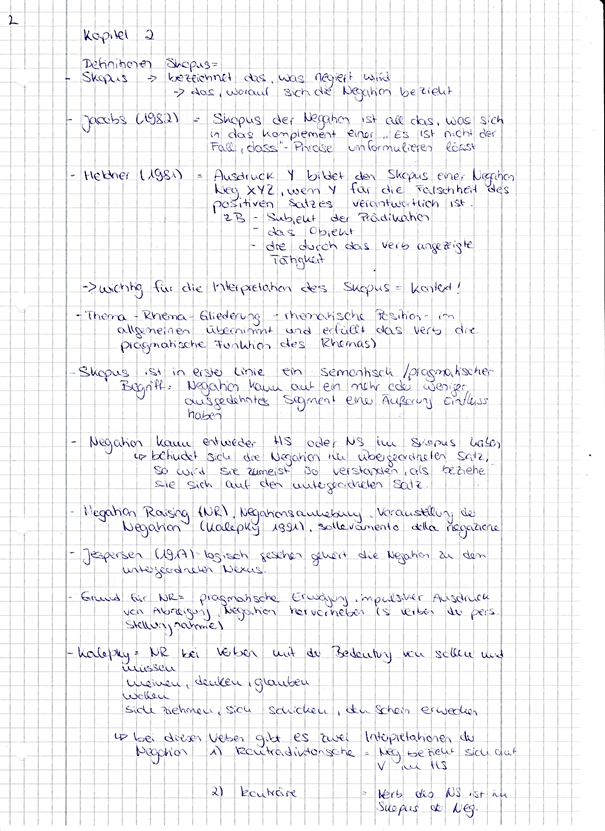 2
Kapitel 2
Definitionen Skopus=
- Skopus -> bezeichnet das, was negiert wird
-> das, worauf sich die Negation bezieht
- Jacobs (1982) = Skopus der Negation ist all das, was sich
in das Komplement einer "Es ist nicht der
Fall, dass"- Phrase umformulieren lässt
- Heldner (1981) = Ausdruck Y bildet den Skopus einer Negation
Neg XYZ, wenn Y für die Falschheit des
positiven Satzes verantwortlich ist.
ZB - Subjekt der Prädikation
- das Objekt
- die durch das Verb angezeigte
Tätigkeit
-> wichtig für die Interpretation des Skopus = Kontext!
- Thema - Rhema - Gliederung - rhematische Position - im
allgemeinen übernimmt und erfüllt das Verb die
pragmatische Funktion des Rhemas)
- Skopus ist in erster Linie ein semantisch/pragmatischer
Begriff= Negation kann auf ein mehr oder weniger
ausgedehntes Segment einer Äußerung Einfluss
haben
- Negation kann entweder HS oder NS im Skopus haben
↳ befindet sich die Negation im übergeordneten Satz,
so wird sie zumeist so verstanden, als beziehe
sie sich auf den untergeordneten Satz.
- Negation Raising (NR), Negationsanhebung, Voranstellung der
Negation (Kalepky 1891), sollevamento della negazione
- Jespersen (1917)- logisch gesehen gehört die Negation zu dem
untergeordneten Nexus.
- Grund für NR= pragmatische Erwägung, impulsiver Ausdruck
von Abneigung, Negation hervorheben (s Verben der pers
Stellungnahme)
- Kalepky= NR bei Verben mit der Bedeutung von sollen und
müssen
meinen, denken, glauben
wollen
sich ziehmen, sich schicken, den Schein erwecken
↳ bei diesen Verben gibt es zwei Interpretationen der
Negation 1) kontradiktorische = Neg bezieht sich auf
V im HS
2) konträre = Verb des NS ist im
Skopus der Neg.